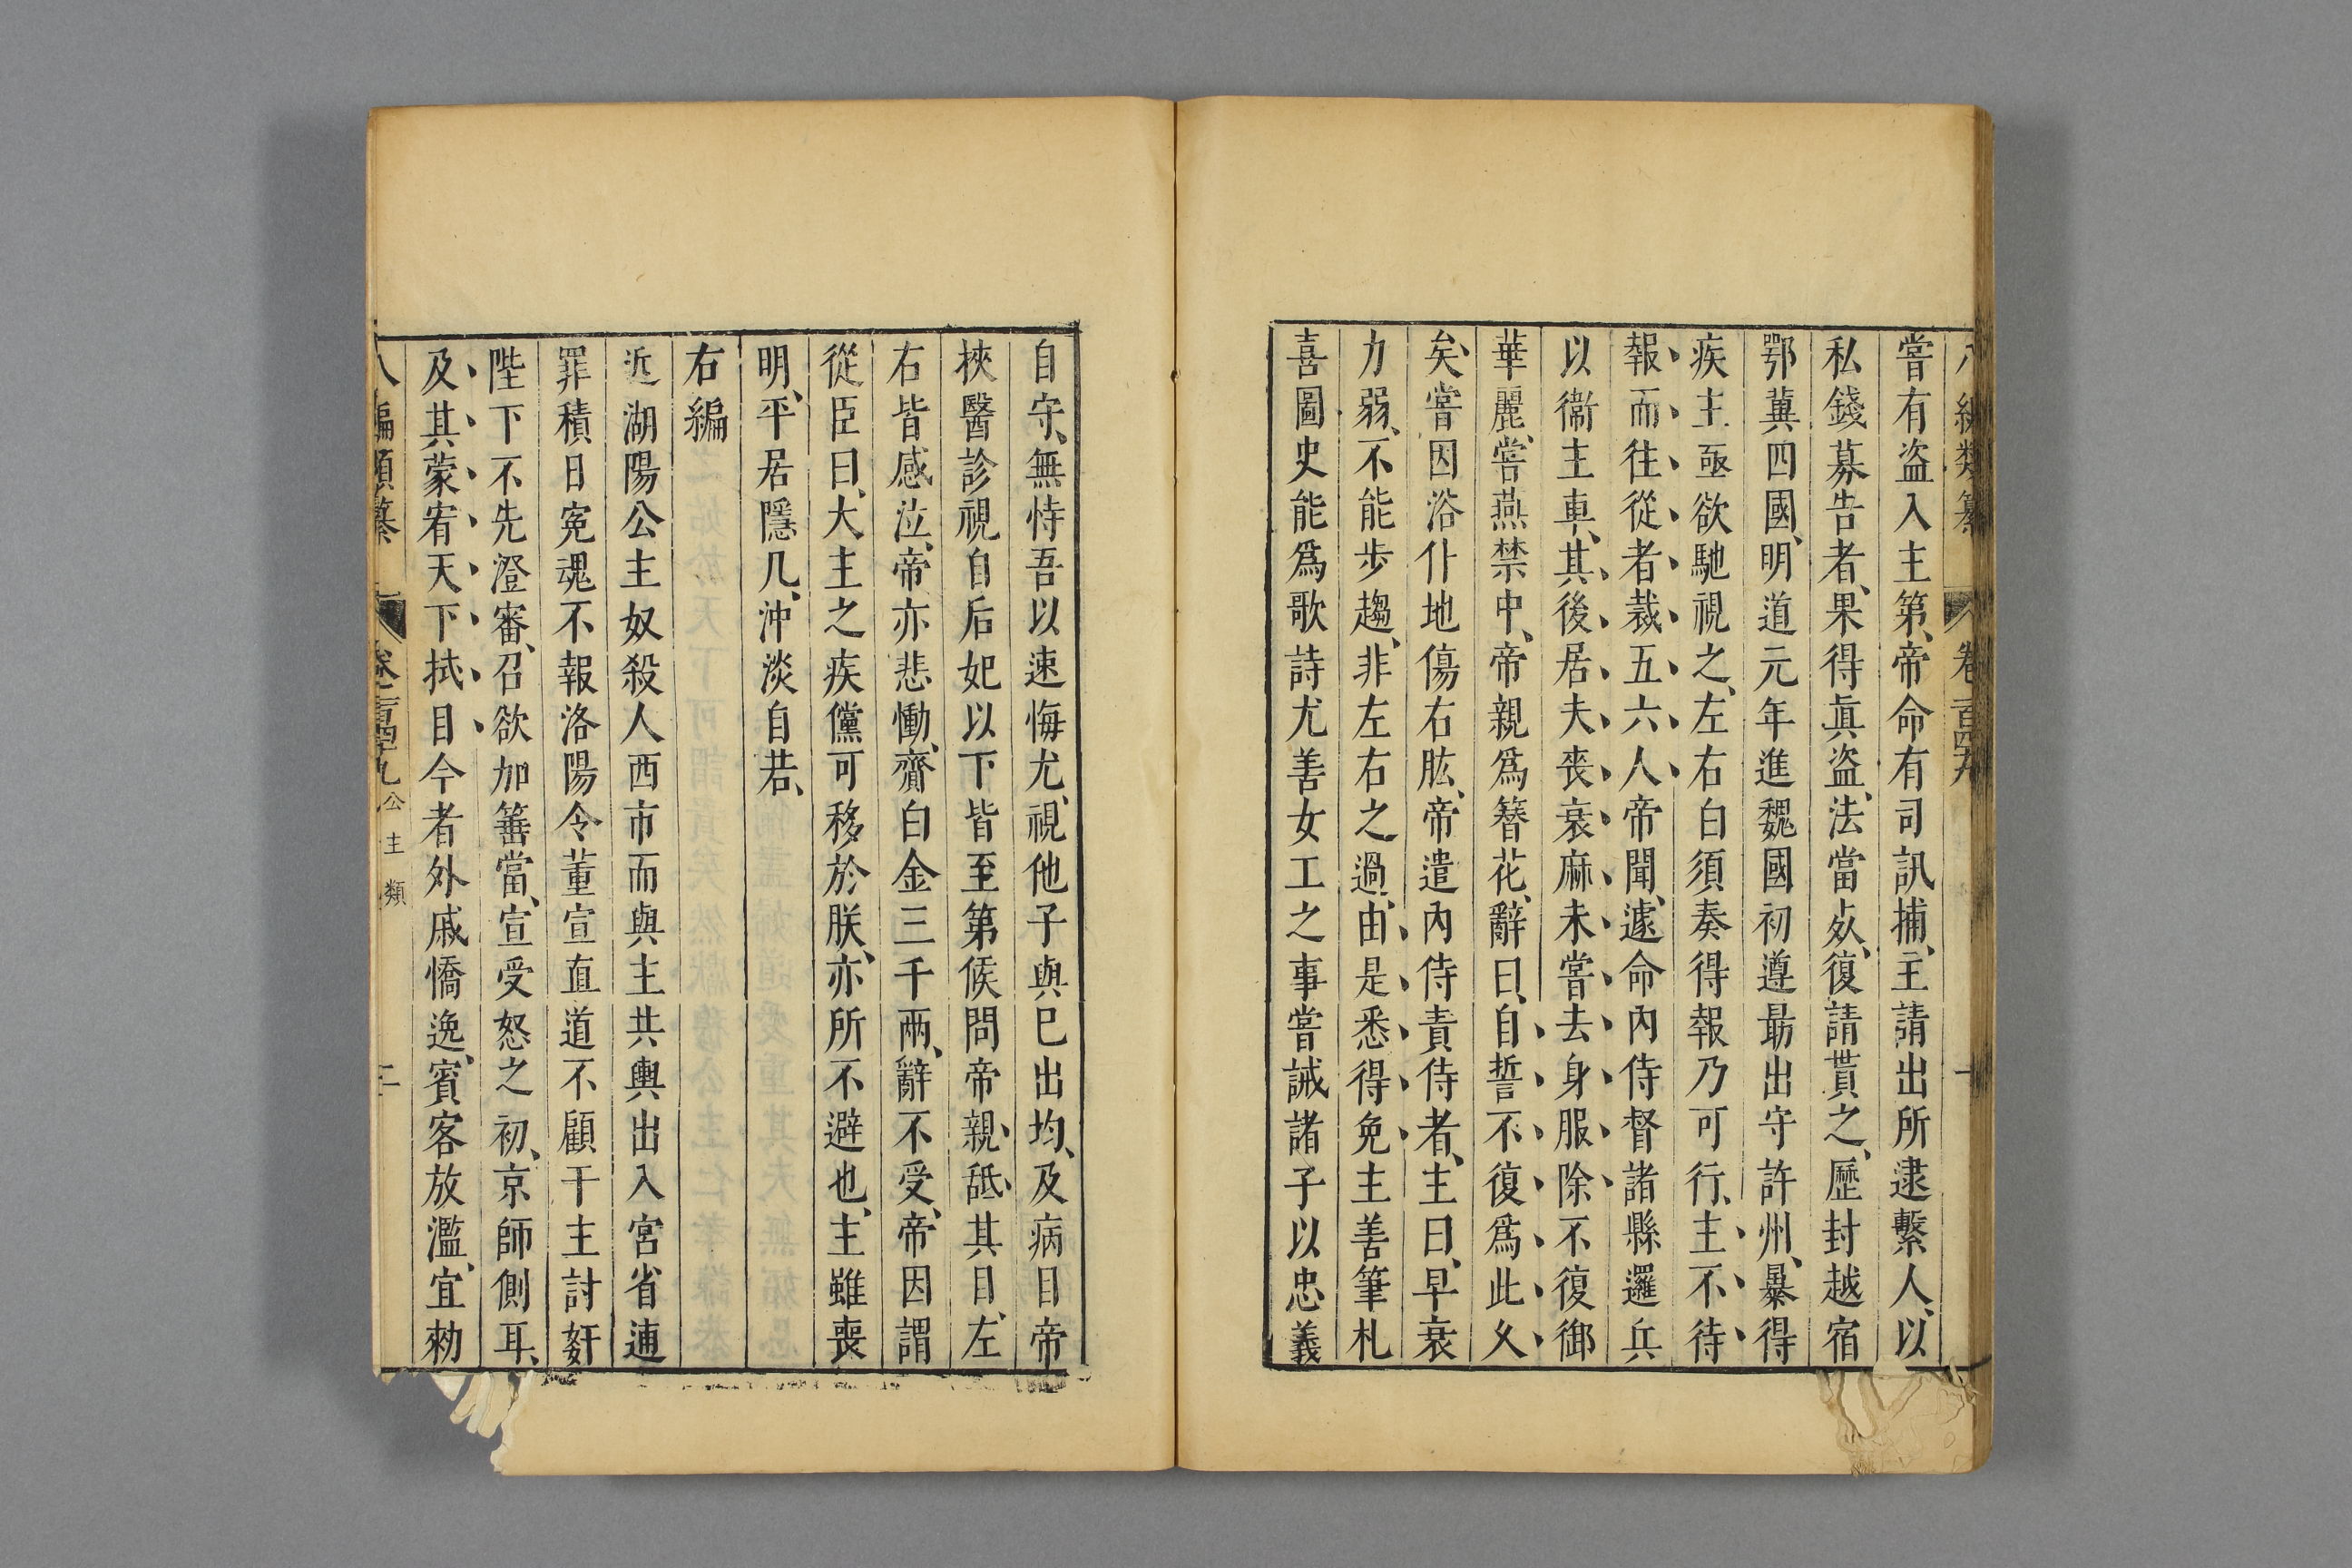 八編類纂 卷一百四十九 一
嘗有盜入主第、帝命有司訊捕、主請出所逮繫人、以
私錢募告者、果得眞盜、法當㱾、復請貰之、歷封越宿
鄂冀四國、明道元年進魏國初遵朂出守許州、暴得
疾主亟欲馳視之、左右白須奏得報乃可行、主不待
報而往從者裁五六人帝聞、遽命內侍督諸縣邏兵
以衞主車、其後居夫喪衰麻未嘗去身服除不復御
華麗、嘗燕禁中、帝親爲簪花、辭曰、自誓不復爲此久
矣、嘗因浴仆地傷右肱、帝遣內侍責侍者、主曰、早衰
力弱、不能步趨、非左右之過、由是悉得免主善筆札
喜圖史能爲歌詩尤善女工之事嘗誡諸子以忠義
自守、無恃吾以速悔尤、視他子與巳出均、及病目帝
挾醫診視自后妃以下皆至第候問帝親䑛其目、左
右皆感泣、帝亦悲慟、齎白金三千兩、辭不受、帝因謂
從臣曰、大主之疾儻可移於朕、亦所不避也、主雖喪
明、平居隱几、沖淡自若、
右編
近湖陽公主奴殺人西市而與主共輿出入宮省逋
罪積日寃魂不報洛陽令董宣直道不顧干主討奸
陛下不先澄審、召欲加箠當、宣受怒之初、京師側耳、
及其蒙宥天下拭目今者外戚憍逸、賓客放濫、宜勑
八編類纂 卷一百四十九 公主類 二